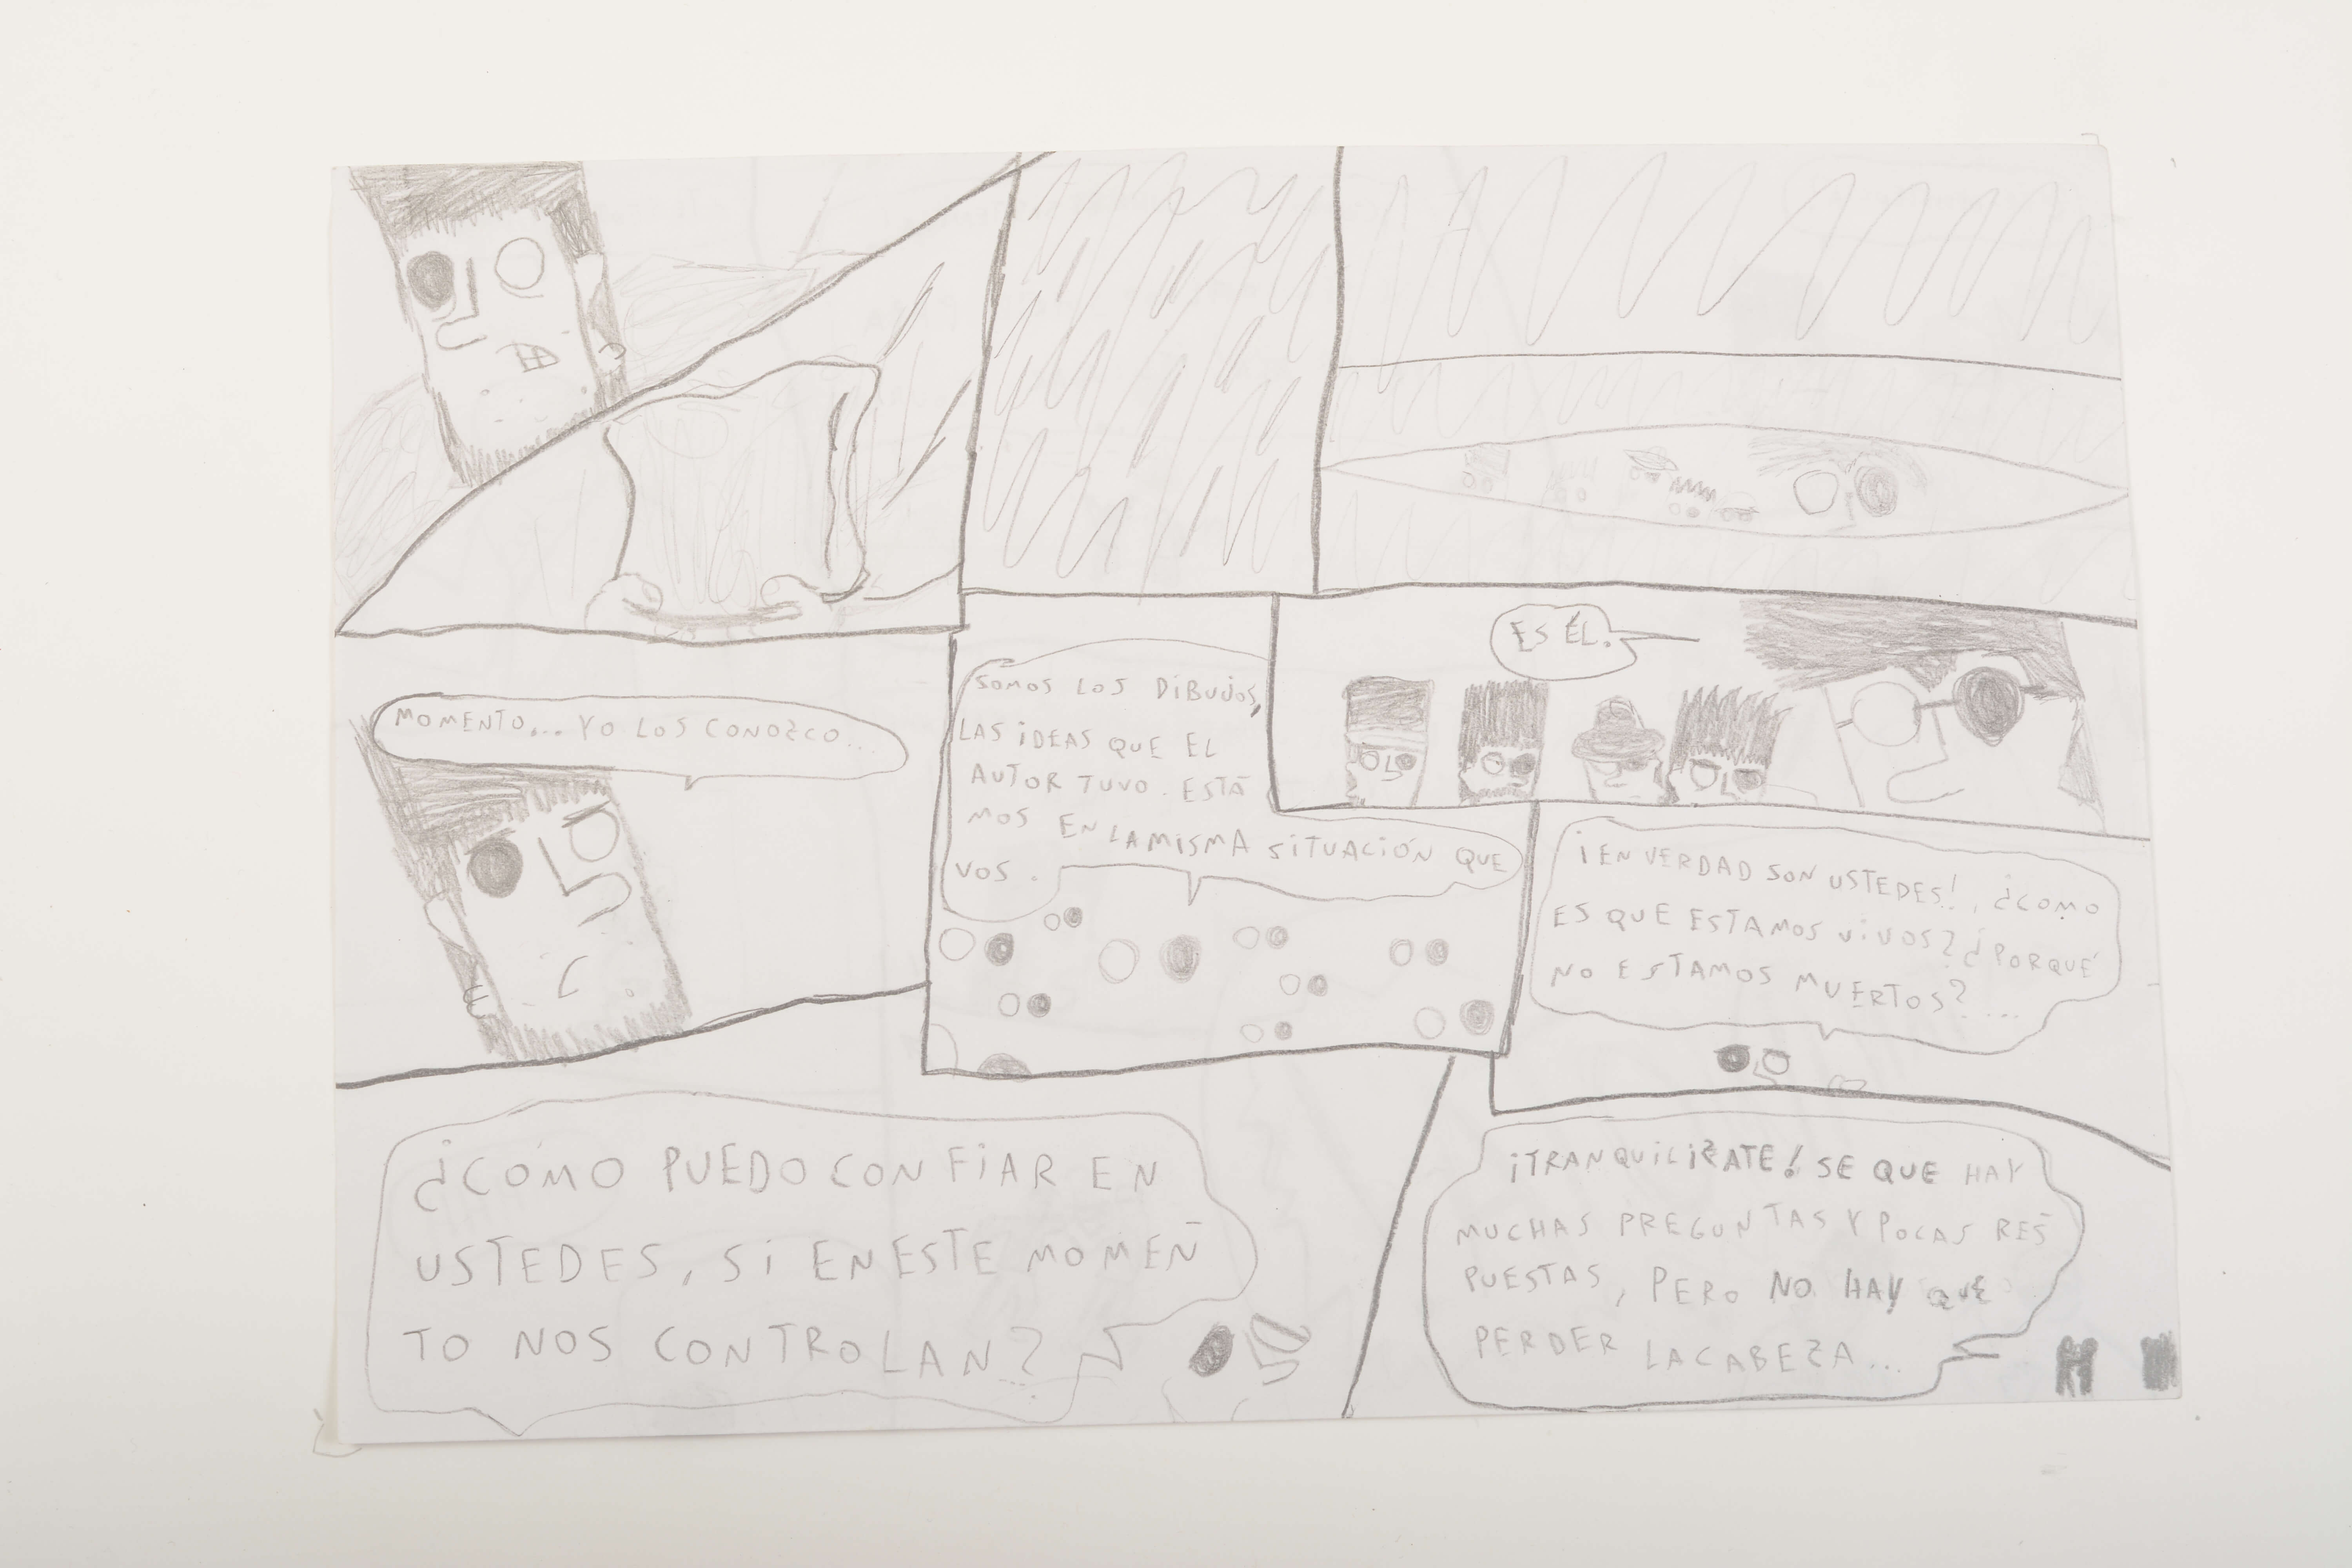 MOMENTO... YO LOS CONOZCO...
SOMOS LOS DIBUJOS,
LAS IDEAS QUE EL
AUTOR TUVO. ESTA-
MOS EN LA MISMA SITUACIÓN QUE
VOS.
ES ÉL.
¡EN VERDAD SON USTEDES!, ¿COMO
ES QUE ESTAMOS VIVOS? ¿PORQUÉ
NO ESTAMOS MUERTOS?...
¿CÓMO PUEDO CONFIAR EN
USTEDES, SI EN ESTE MOMEN-
TO NOS CONTROLAN?...
¡TRANQUILIZATE! SE QUE HAY
MUCHAS PREGUNTAS Y POCAS RES-
PUESTAS, PERO NO HAY QUE
PERDER LA CABEZA...